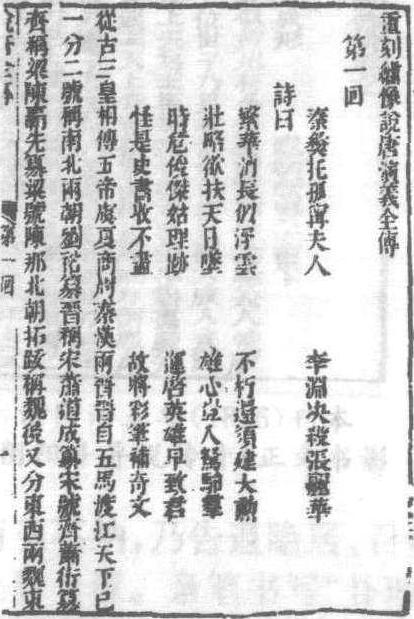 重刻繡像說唐演義全傳
第一回
秦彝托孤寧夫人　李淵决殺張麗華
詩曰
繁華消長似浮雲　不朽還須建大勲
壯略欲扶天日墜　雄心豈入駑駘羣
時危俊傑姑埋跡　運啓英雄早致君
怪是史書收不盡　故將彩筆補奇文
從古三皇相傳五帝虞夏商周秦漢兩晉晉自五馬渡江天下已
一分二號稱南北兩朝劉裕簒晉稱宋蕭道成簒宋號齊蕭衍簒
齊稱梁陳霸先簒梁號陳那北朝拓跋稱魏後又分東西兩魏東
第一回